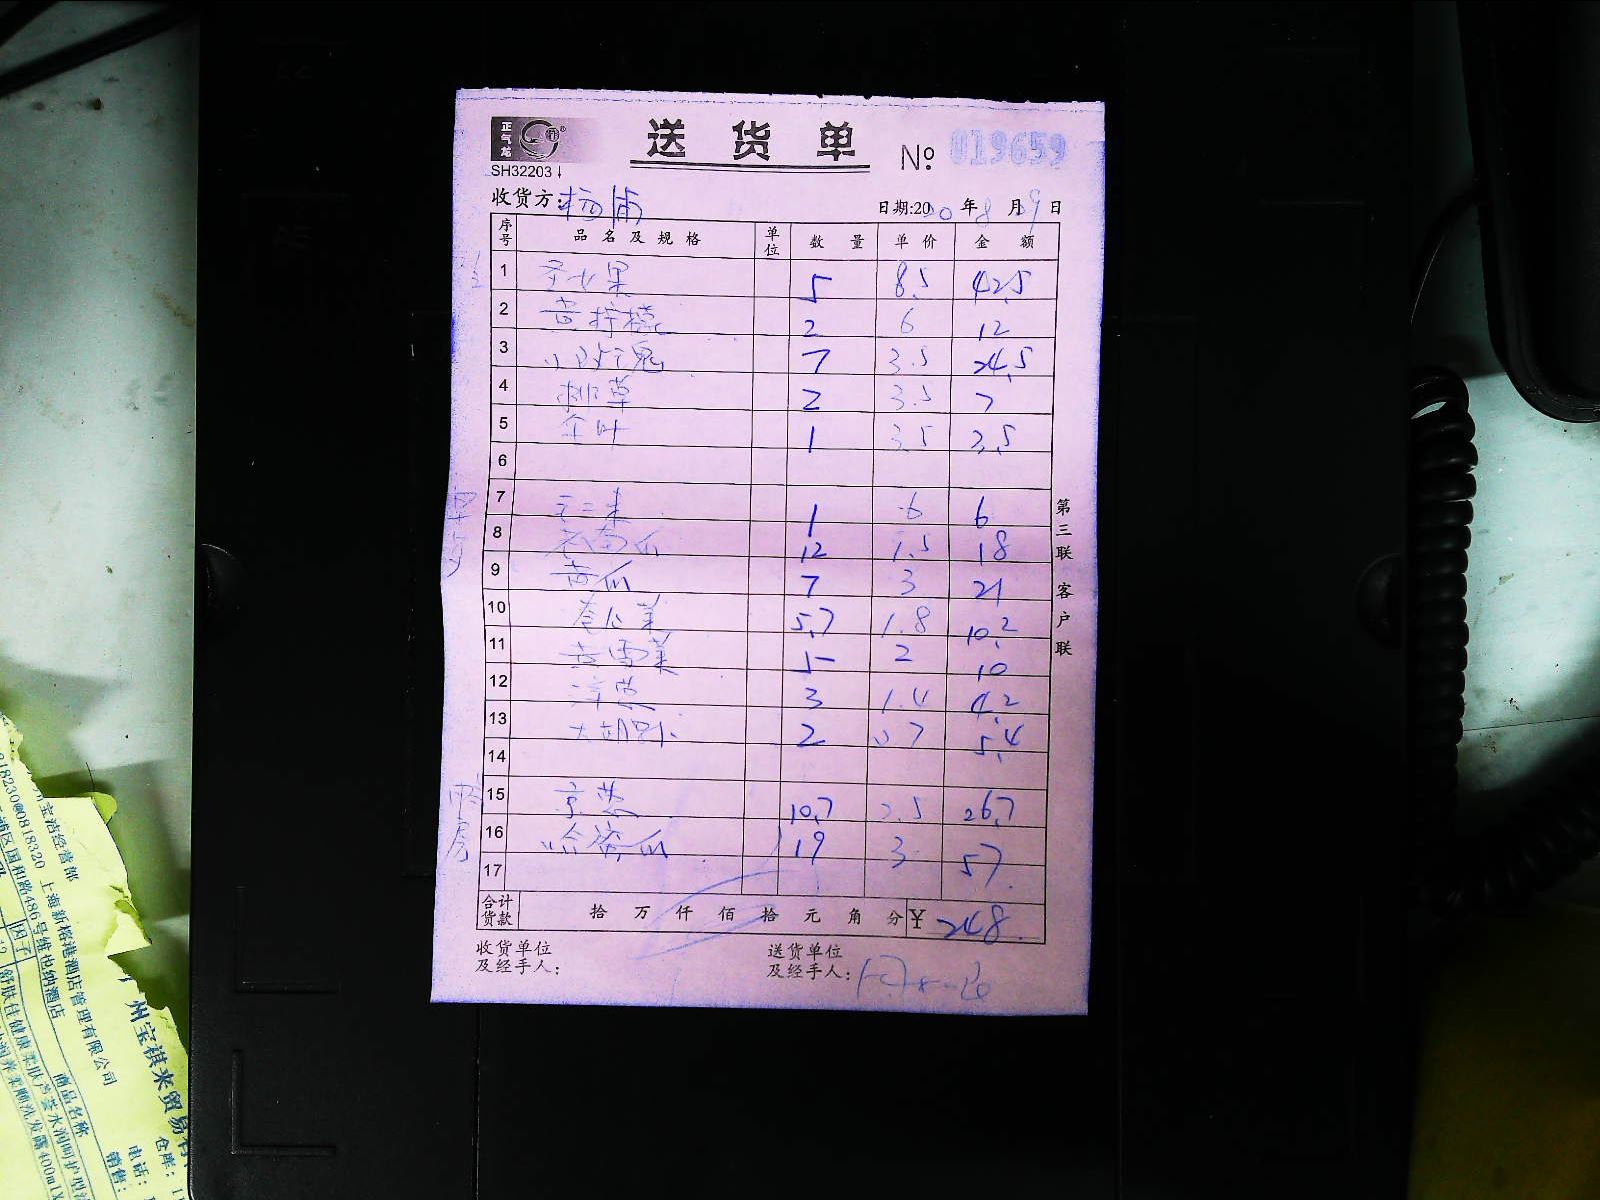 正气龙
送货单
№ 019659
SH32203↓
收货方: 杨浦
日期:2020年8月19日
序号 品名及规格 单位 数量 单价 金额
1 圣女果 5 8.5 42.5
2 黄柠檬 2 6 12
3 小玫瑰 7 3.5 24.5
4 排草 2 3.5 7
5 1 3.5 3.5
6
7 1 6 6
8 南瓜 12 1.5 18
9 黄瓜 7 3 21
10 卷心菜 5.7 1.8 10.2
11 菜 5 2 10
12 洋葱 3 1.4 4.2
13 大胡 2 2.7 5.4
14
15 京葱 10.7 2.5 26.7
16 哈密瓜 19 3 57
17
合计货款 拾 万 仟 佰 拾 元 角 分 ¥ 248
收货单位及经手人:
送货单位及经手人:
第三联 客户联
818230@0818320 上海新榕港酒店管理有限公司
浦区国和路486号维也纳酒店
州宝洁经营部
州宝祺来贸易有
商品名称
仓库:
电话:
销售: